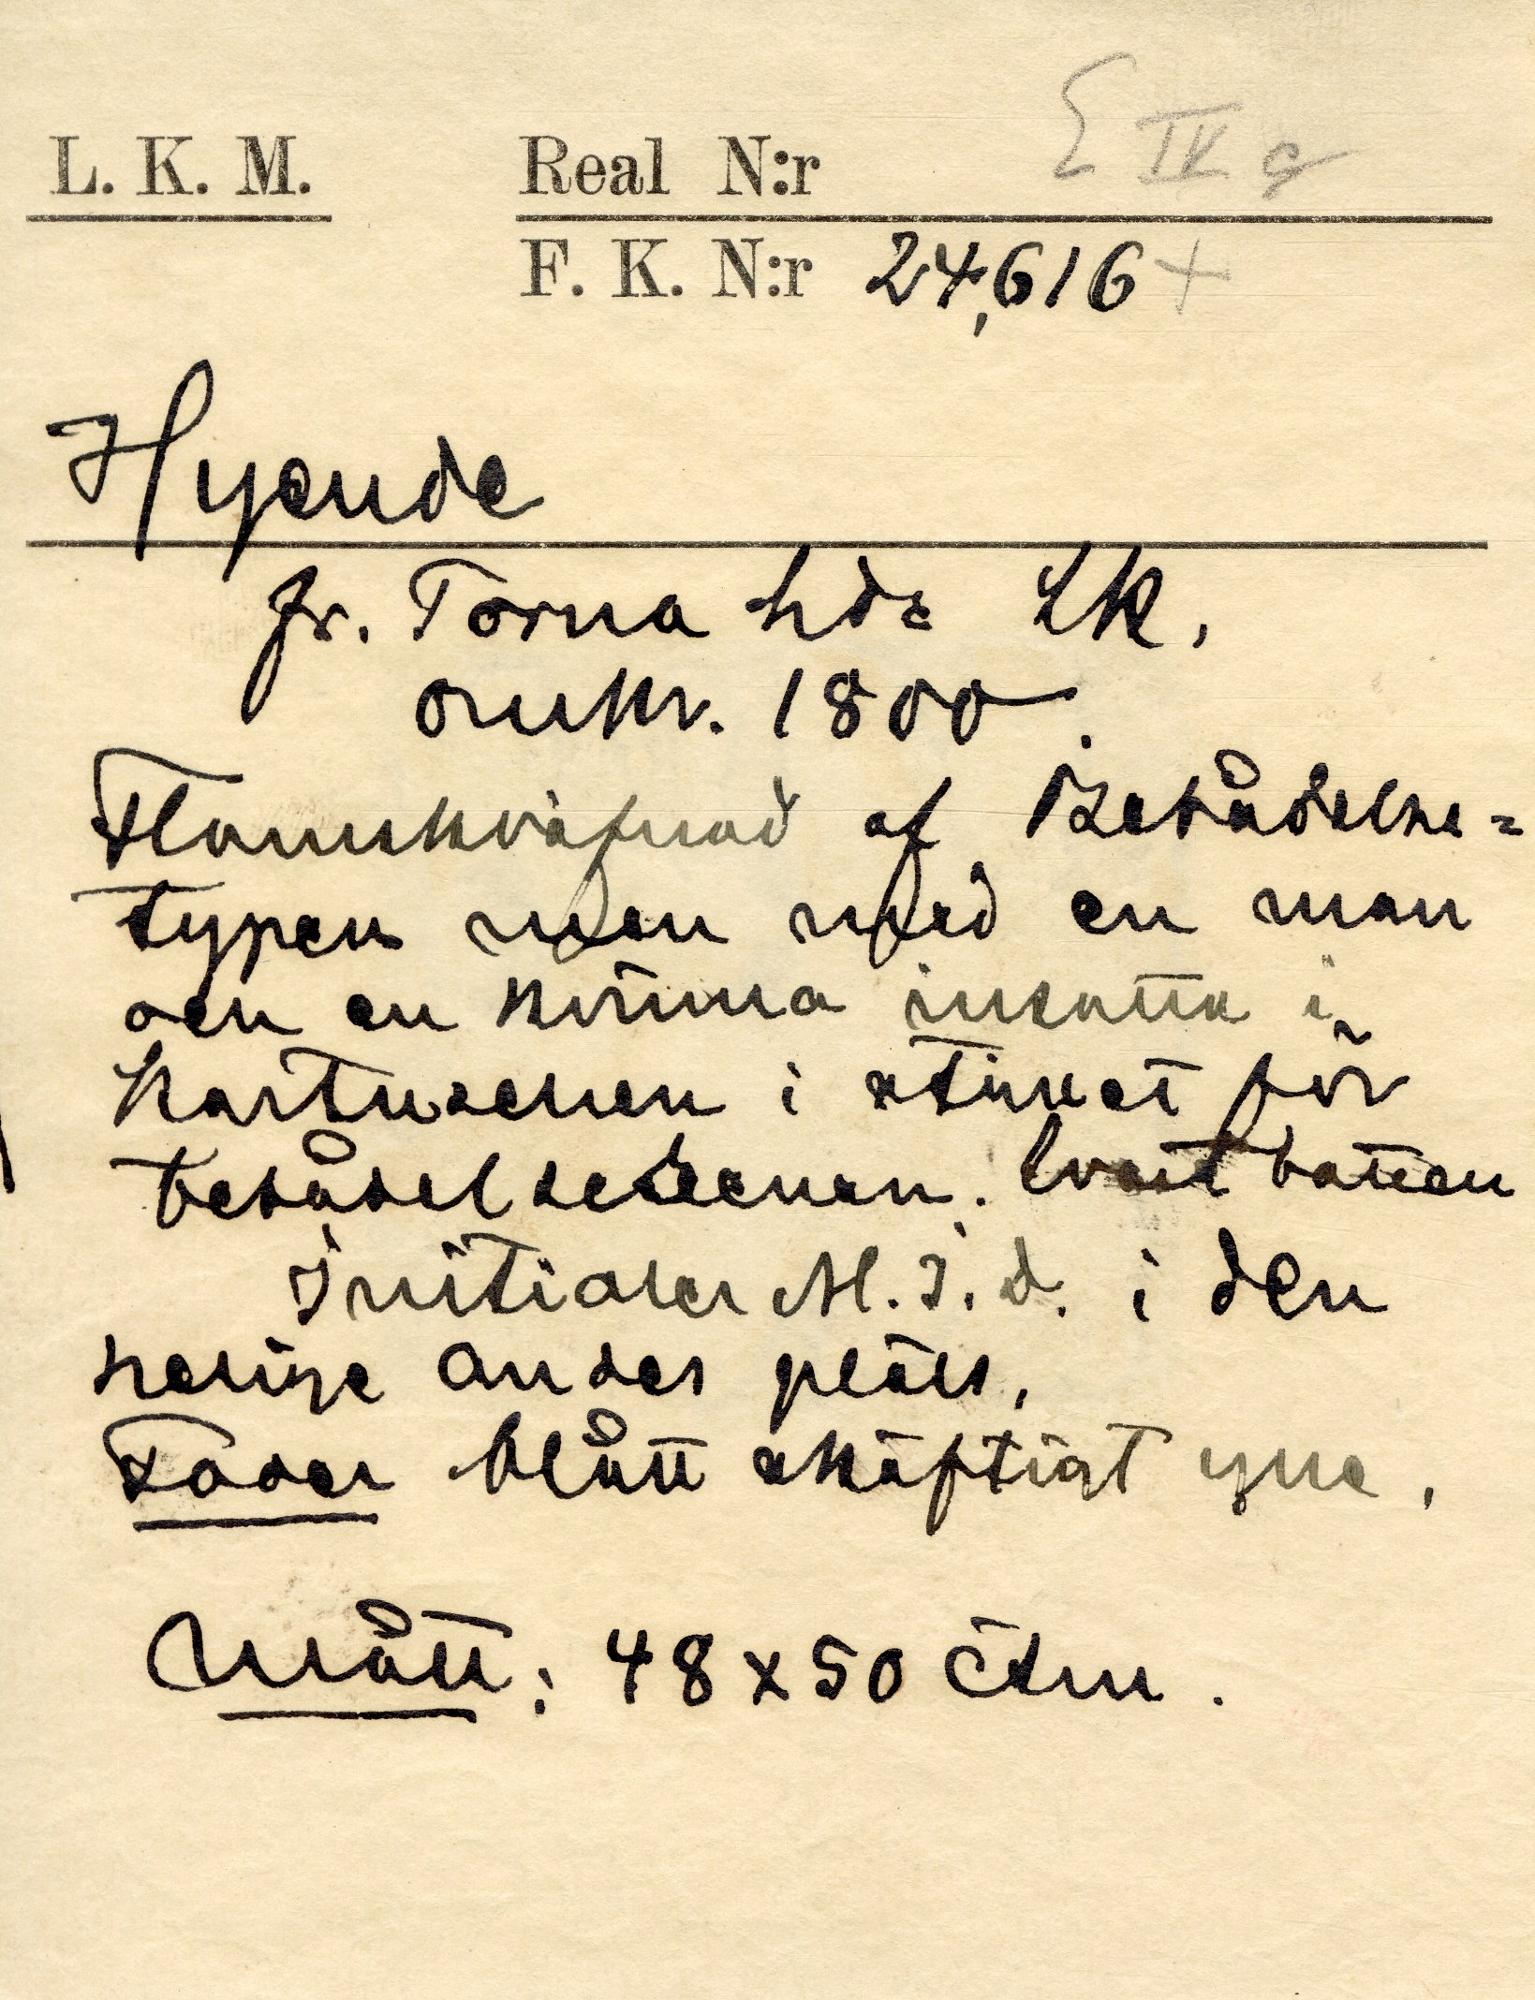 L. K. M. Real N:r E IV g
F. K. N:r 24,616 +
Hyende
fr. Torna hds Sk.
omkr. 1800.
Flamskväfnad af Bebådelse=
typen men med en man
och en kvinna insatta i
kartuschen i stället för
bebådelsescenen. Svart botten
Initialer M. I. d. i den
helige Andes plats.
Foder blått skäftigt ylle.
Mått: 48 x 50 ctm.